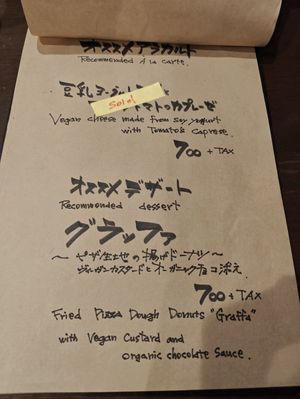 オススメアラカルト
Recommended A la carte.
豆乳ヨーグルト
Sold
トマトのカプレーゼ
Vegan cheese made from soy yogurt
with Tomato's Caprese.
700 + TAX
オススメデザート
Recommended dessert
グラッファ
〜ピザ生地の揚げドーナツ〜
ヴィーガンカスタードとオーガニックチョコ添え
700 + TAX
Fried Pizza Dough Donuts "Graffa"
with Vegan Custard and
organic chocolate sauce.